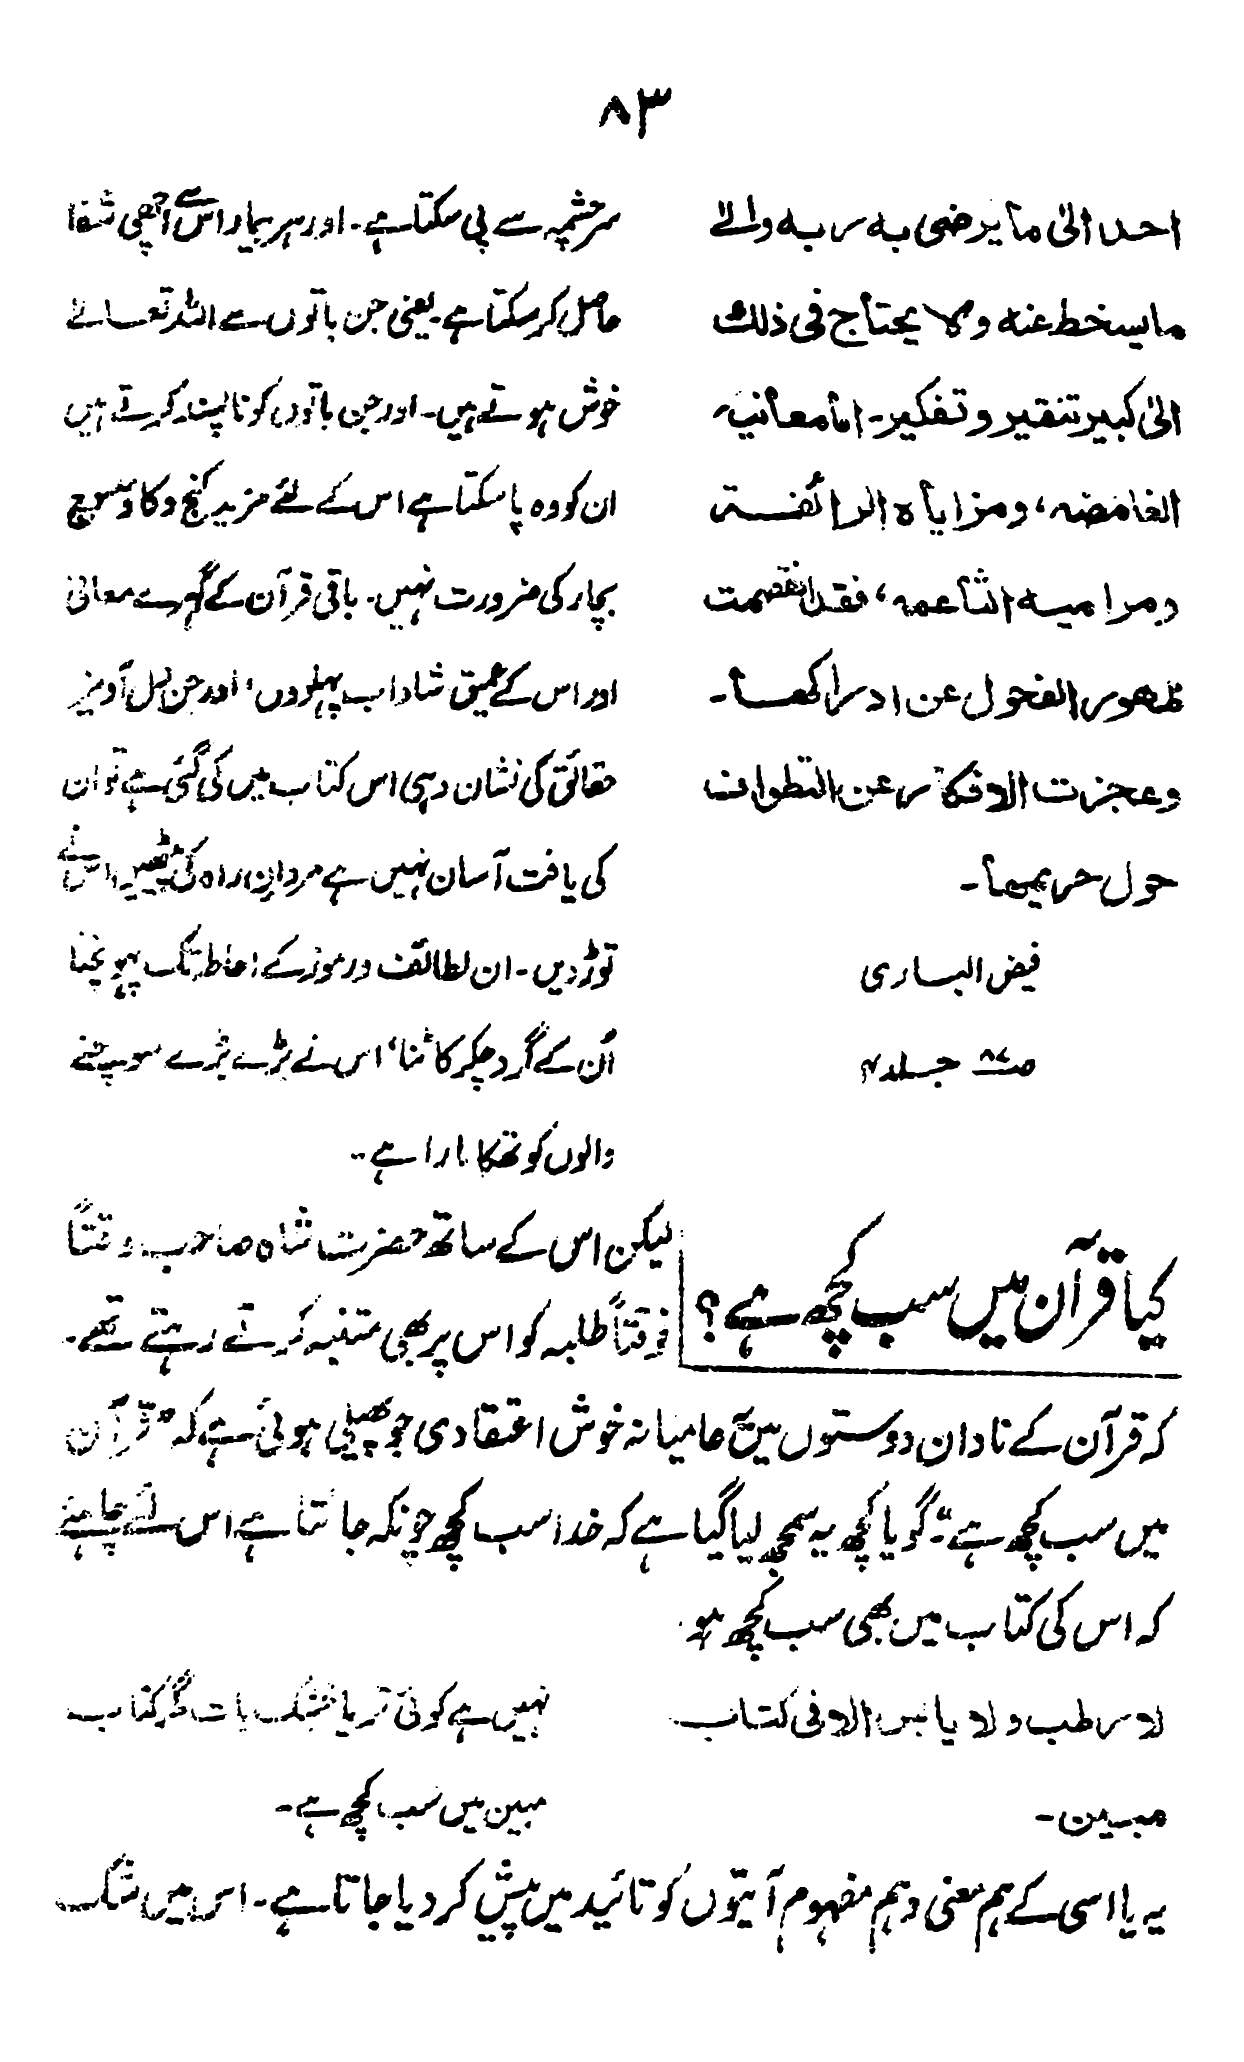 ۸۳
احد الیٰ ما یرضی بہ ربہ والے
ما یسخط عنہ ولا یحتاج فی ذلك
الیٰ کبیر تنقیر و تفکیر۔ اما معانیہ
الغامضہ، ومزایاہ الرائفۃ
ومرامیہ الناعمہ، فقد انقصمت
ظھور الفحول عن ادراکھا۔
وعجزت الافکار عن التطواف
حول حریمھا۔
فیض الباری
ص۸۷ جلد ۴
سرچشمہ سے پی سکتا ہے۔ اور ہر بیمار اس سے اچھی شفا
حاصل کر سکتا ہے۔ یعنی جن باتوں سے اللہ تعالےٰ
خوش ہوتے ہیں۔ اور جن باتوں کو ناپسند کرتے ہیں
ان کو وہ پا سکتا ہے اس کے لئے مزید کنج و کاو سوچ
بچار کی ضرورت نہیں۔ باقی قرآن کے گہرے معانی
اور اس کے عمیق شاداب پہلوؤں، اور جن دل آویز
حقائق کی نشان دہی اس کتاب میں کی گئی ہے تو ان
کی یافت آسان نہیں ہے مردانِ راہ کی پیٹھیں اس نے
توڑ دیں۔ ان لطائف و رموز کے احاطہ تک پہونچنا
اُن کے گرد چکر کاٹنا، اس نے بڑے بڑے سوچنے
والوں کو تھکا مارا ہے۔
کیا قرآن میں سب کچھ ہے؟
لیکن اس کے ساتھ حضرت شاہ صاحب وقتاً
فوقتاً طلبہ کو اس پر بھی متنبہ کرتے رہتے تھے۔
کہ قرآن کے نادان دوستوں میں عامیانہ خوش اعتقادی جو پھیلی ہوئی ہے کہ "قرآن
میں سب کچھ ہے"۔ گویا کچھ یہ سمجھ لیا گیا ہے کہ خدا سب کچھ چونکہ جانتا ہے اس لئے چاہئے
کہ اس کی کتاب میں بھی سب کچھ ہو۔
لا رطب ولا یابس الا فی کتاب
مبین۔
نہیں ہے کوئی تر یا خشک بات مگر کتاب
مبین میں سب کچھ ہے۔
یہ یا اسی کے ہم معنی وہم مفہوم آیتوں کو تائید میں پیش کر دیا جاتا ہے۔ اس میں شک